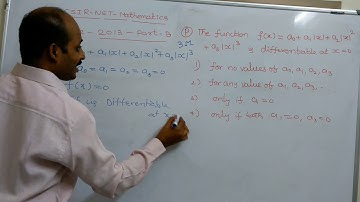 SIR-NET-Mathematics
2013 - Part-B
+a₁|x|+a₂|x|²+a₃|x|³
a₀=a₁=a₂=a₃=0
f(x)=0
is Differentiable
at x
(P) The function f(x)=a₀+a₁|x|+a₂|x|²
+a₃|x|³ is differentiable at x=0
1) for no values of a₀,a₁,a₂,a₃
2) for any value of a₀,a₁,a₂,a₃
3) only if a₁=0
4) only if both a₁=0, a₃=0